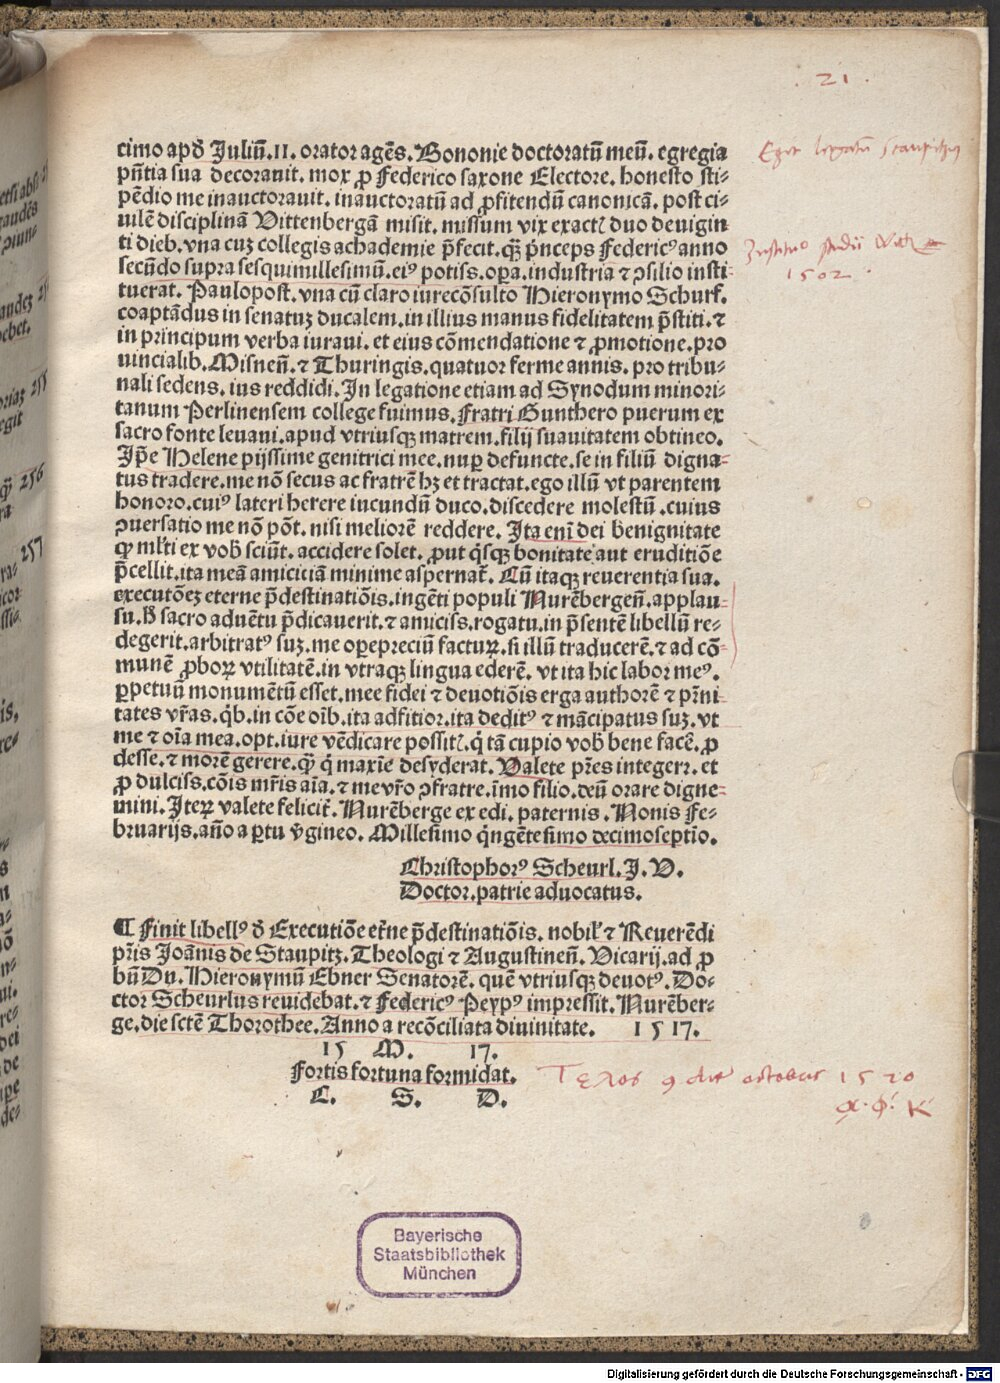 . 21 .
cimo apd̄ Juliū.II. orator agēs. Bononie doctoratū meū. egregia
pn̄tia sua decorauit. mox ꝓ Federico saxone Electore. honesto sti-
pēdio me inauctorauit. inauctoratū ad ꝓfitendū canonicā. post ci-
uilē disciplinā Vittenbergā misit. missum vix exactꝭ duo deuigin
ti dieb. vna cuꝫ collegis achademie p̄fecit. qꝫ p̄nceps Federicꝰ anno
secūdo supra sesquimillesimū. eiꝰ potiss. oꝑa. industria ⁊ ↄsilio insti-
tuerat. Paulopost. vna cū claro iurecōsulto Hieronymo Schurf.
coaptādus in senatuꝫ ducalem. in illius manus fidelitatem p̄stiti. ⁊
in principum verba iuraui. et eius cōmendatione ⁊ ꝓmotione. pro
uincialib. Misnen̄. ⁊ Thuringis. quatuor ferme annis. pro tribu-
nali sedens. ius reddidi. In legatione etiam ad Synodum minori-
tanum Perlinensem college fuimus. Fratri Gunthero puerum ex
sacro fonte leuaui. apud vtriusqꝫ matrem. filij suauitatem obtineo.
Ip̄e Helene pijssime genitrici mee. nuꝑ defuncte. se in filiū digna-
tus tradere. me nō secus ac fratrē hꝫ et tractat. ego illū vt parentem
honoro. cuiꝰ lateri herere incundū duco. discedere molestū. cuius
ↄuersatio me nō pōt. nisi meliorē reddere. Ita enī dei b̄enignitate
qꝫ ml̄ti ex vob̄ sciūt. accidere solet. ꝓut qͥsqꝫ bonitate aut eruditiōe
p̄cellit. ita meā amiciciā minime aspernat̄. Cū itaqꝫ reuerentia sua.
executōeꝫ eterne p̄destinatiōis. ingēti populi Nurēbergen̄. applau-
su. H̄ sacro aduētu p̄dicauerit. ⁊ amiciss. rogatu. in p̄sentē libellū re-
degerit. arbitratꝰ suꝫ. me oꝑepreciū facturꝝ. si illū traducerē. ⁊ ad cō-
munē ꝓborꝝ vtilitatē. in vtraqꝫ lingua ederē. vt ita hic labor meꝰ.
ꝑpetuū monumētū esset. mee fidei ⁊ deuotiōis erga authorē ⁊ pr̄ni
tates vr̄as. qb̄. in cōe oīb. ita adfitior. ita deditꝰ ⁊ mācipatus suꝫ. vt
me ⁊ oīa mea. opt. iure vēdicare possitꝭ. qͥ tā cupio vob̄ bene facē. ꝓ
desse. ⁊ morē gerere. qꝫ qͥ maxīe desyderat. Valete pr̄es integerr. et
ꝓ dulciss. cōis mr̄is aīa. ⁊ me vr̄o ↄfratre. īmo filio. deū orare digne-
mini. Iterꝝ valete felicit̄. Nurēberge ex edi. paternis. Nonis Fe-
bruarijs. año a ꝑtu v̄gineo. Millesimo qͥngētesimo decimoseptīo.
Christophorꝰ Scheurl. J. V.
Doctor. patrie aduocatus.
¶ Finit libellꝰ d̄ Executiōe et̄ne p̄destinatiōis. nobilꝭ ⁊ Reuerēdi
pr̄is Joānis de Staupitz. Theologi ⁊ Augustinen̄. Vicarij. ad ꝓ
bū Dn̄. Hieronymū Ebner Senatorē. quē vtriusqꝫ deuotꝰ. Do-
ctor Scheurlus reuidebat. ⁊ Federicꝰ Peypꝰ impressit. Nurēber-
ge. die sctē Thorothee. Anno a recōciliata diuinitate. 1517.
15 M. 17.
Fortis fortuna formidat.
C. S. D.
1502 .
Τελος 9 die octobris 1520
Bayerische
Staatsbibliothek
München
256
257
Digitalisierung gefördert durch die Deutsche Forschungsgemeinschaft - DFG